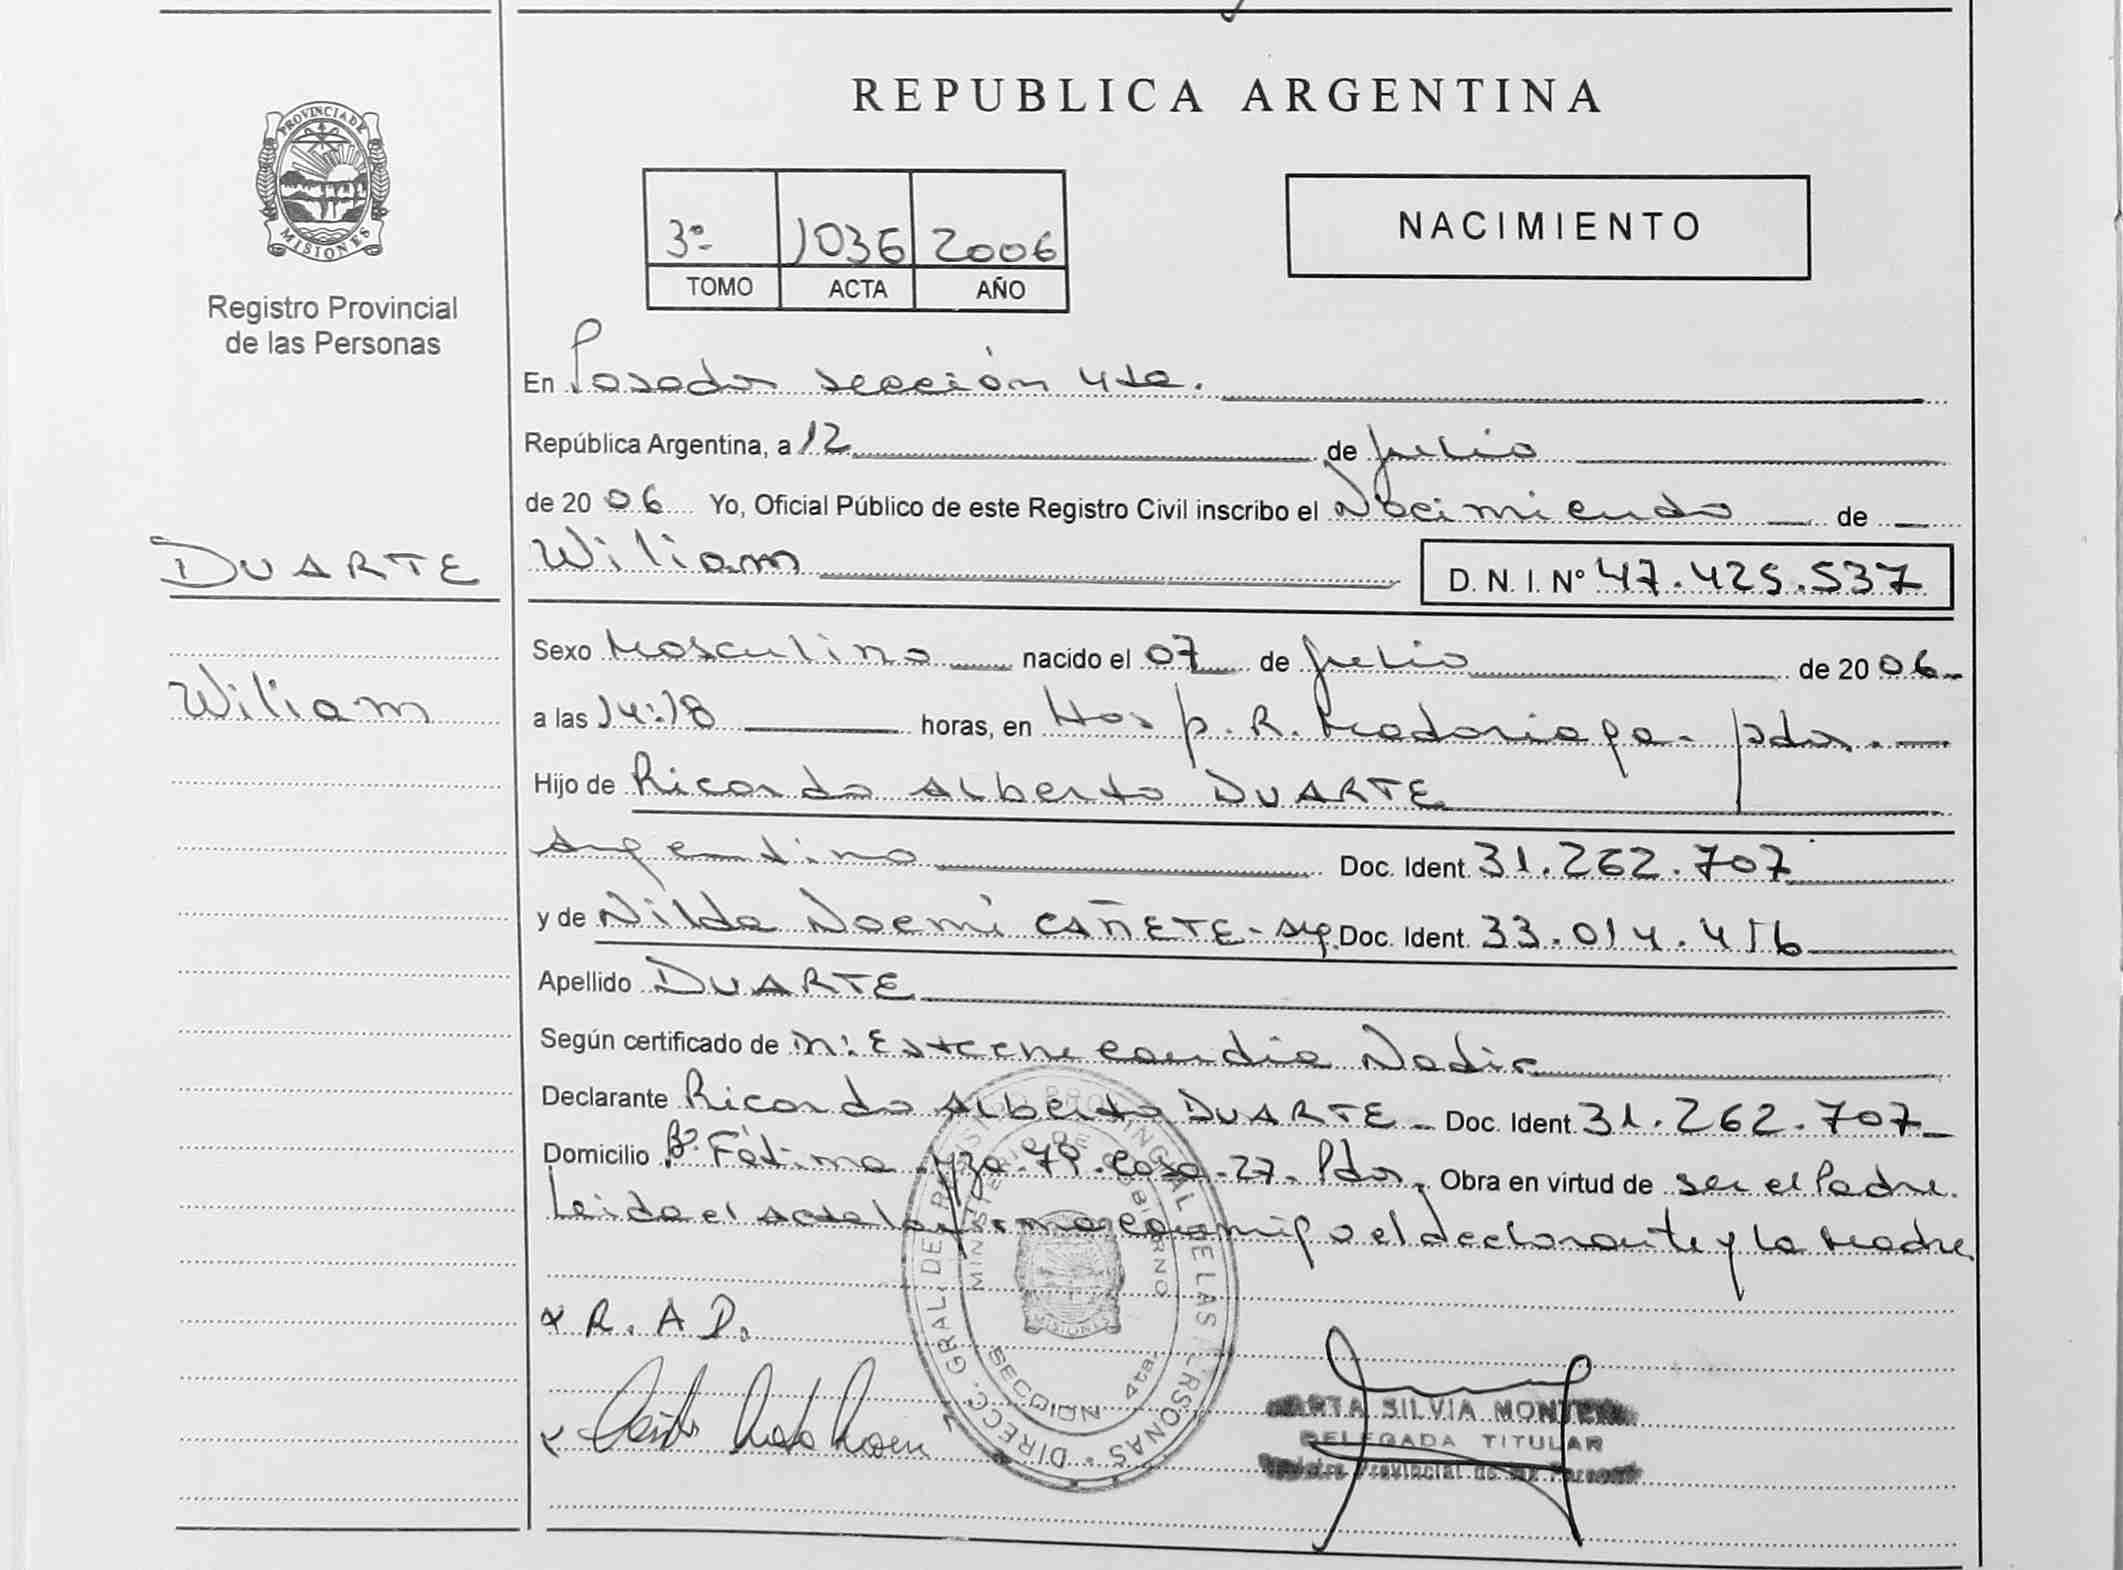 REPUBLICA ARGENTINA
PROVINCIA DE
MISIONES
Registro Provincial
de las Personas
3º 1036 2006
TOMO ACTA AÑO
NACIMIENTO
En Posadas sección 4ta.
República Argentina, a 12 de julio
de 2006 Yo, Oficial Público de este Registro Civil inscribo el Nacimiento de
DUARTE
Wiliam
Wiliam
D. N. I. Nº 47.425.537
Sexo Masculino nacido el 07 de julio de 2006
a las 14:18 horas, en Hosp. R. Madariaga - pdas.
Hijo de Ricardo Alberto DUARTE
Argentino Doc. Ident. 31.262.707
y de Nilda Noemi CAÑETE - Arg. Doc. Ident. 33.014.416
Apellido DUARTE
Según certificado de Nadia
Declarante Ricardo Alberto DUARTE - Doc. Ident. 31.262.707
Domicilio Bº Fátima Mza. 79. Casa. 27. Pdas. Obra en virtud de ser el Padre.
Leida el acta la firma conmigo el declarante y la Madre
DIRECC. GRAL. DEL REGISTRO PROVINCIAL DE LAS PERSONAS
MINISTERIO DE GOBIERNO
MISIONES
SECCION 4ta.
x R. A D.
x
MARTA SILVIA
DELEGADA TITULAR
Registro Provincial de las Personas